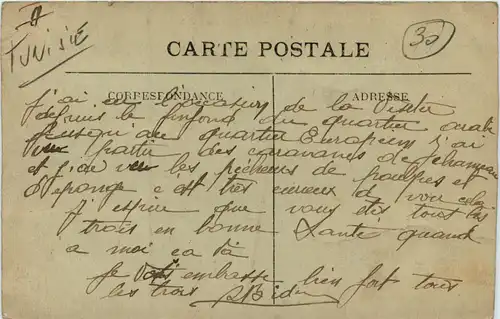 II
TUNISIE
30
CARTE POSTALE
CORRESPONDANCE
ADRESSE
j'ai eu l'occasion de la visiter
depuis le finfond du quartier arabe
jusque au quartier Européen j'ai
vu partir des caravanes de chameau
et j'ai vu les pécheurs de poulpes et
d'éponge c est très curieux d voir cela
j espère que vous êtes tout les
trois en bonne Santé quand
a moi ca va
je vous embrasse bien fort tous
les trois